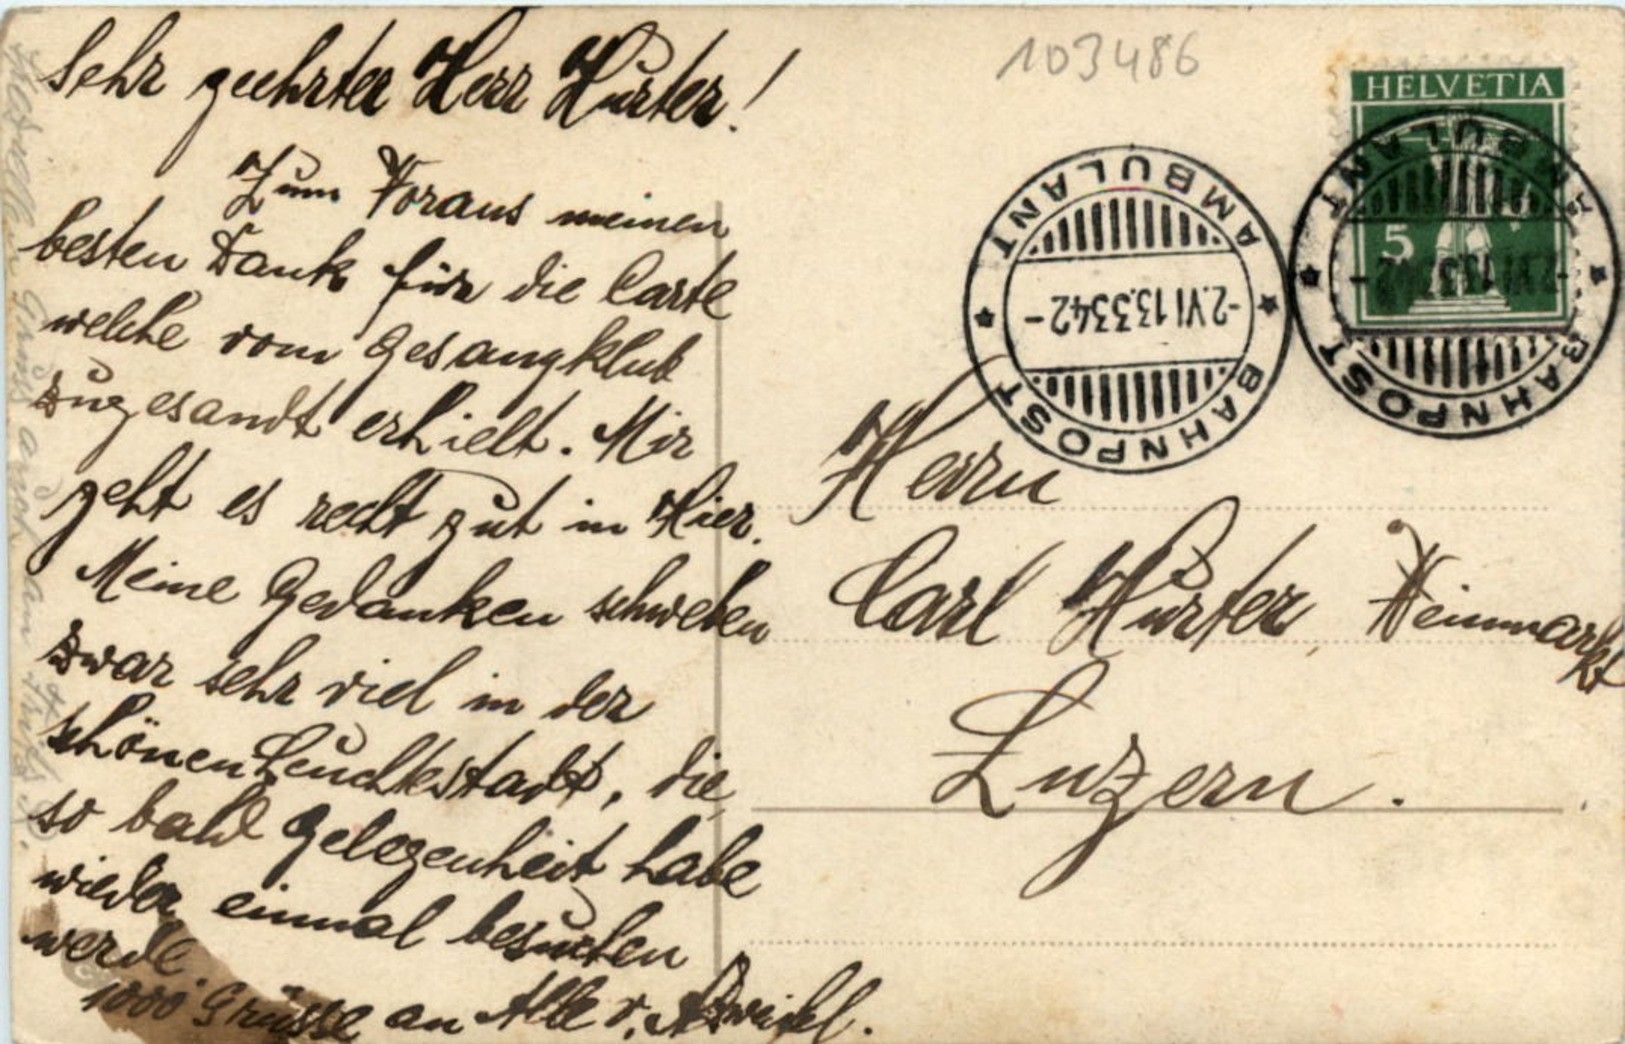 Sehr geehrter Herr Hurter!
Zum Voraus meinen
besten Dank für die Carte
welche vom Gesangklub
zugesandt erhielt. Mir
geht es recht gut in Hier.
Meine Gedanken schweben
zwar sehr viel in der
schönen Leuchtestadt, die
so bald Gelegenheit habe
wieder einmal besuchen
werde.
1000 Grüsse an Alle v.
Gruss auch an
103486
HELVETIA
5
AMBULANT
-2.VI 13.3342-
BAHNPOST
AMBULANT
BAHNPOST
Herrn
Carl Hurter, Weinmarkt
Luzern.